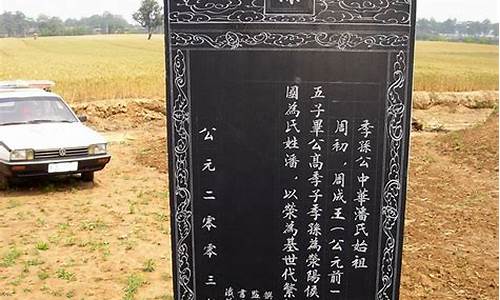 季孫公中華潘氏始祖
周初，周成王（公元前一
五子畢公高季子季孫為榮陽侯
國為氏姓潘，以榮為基世代繁
公元二零零三
撰
監
書